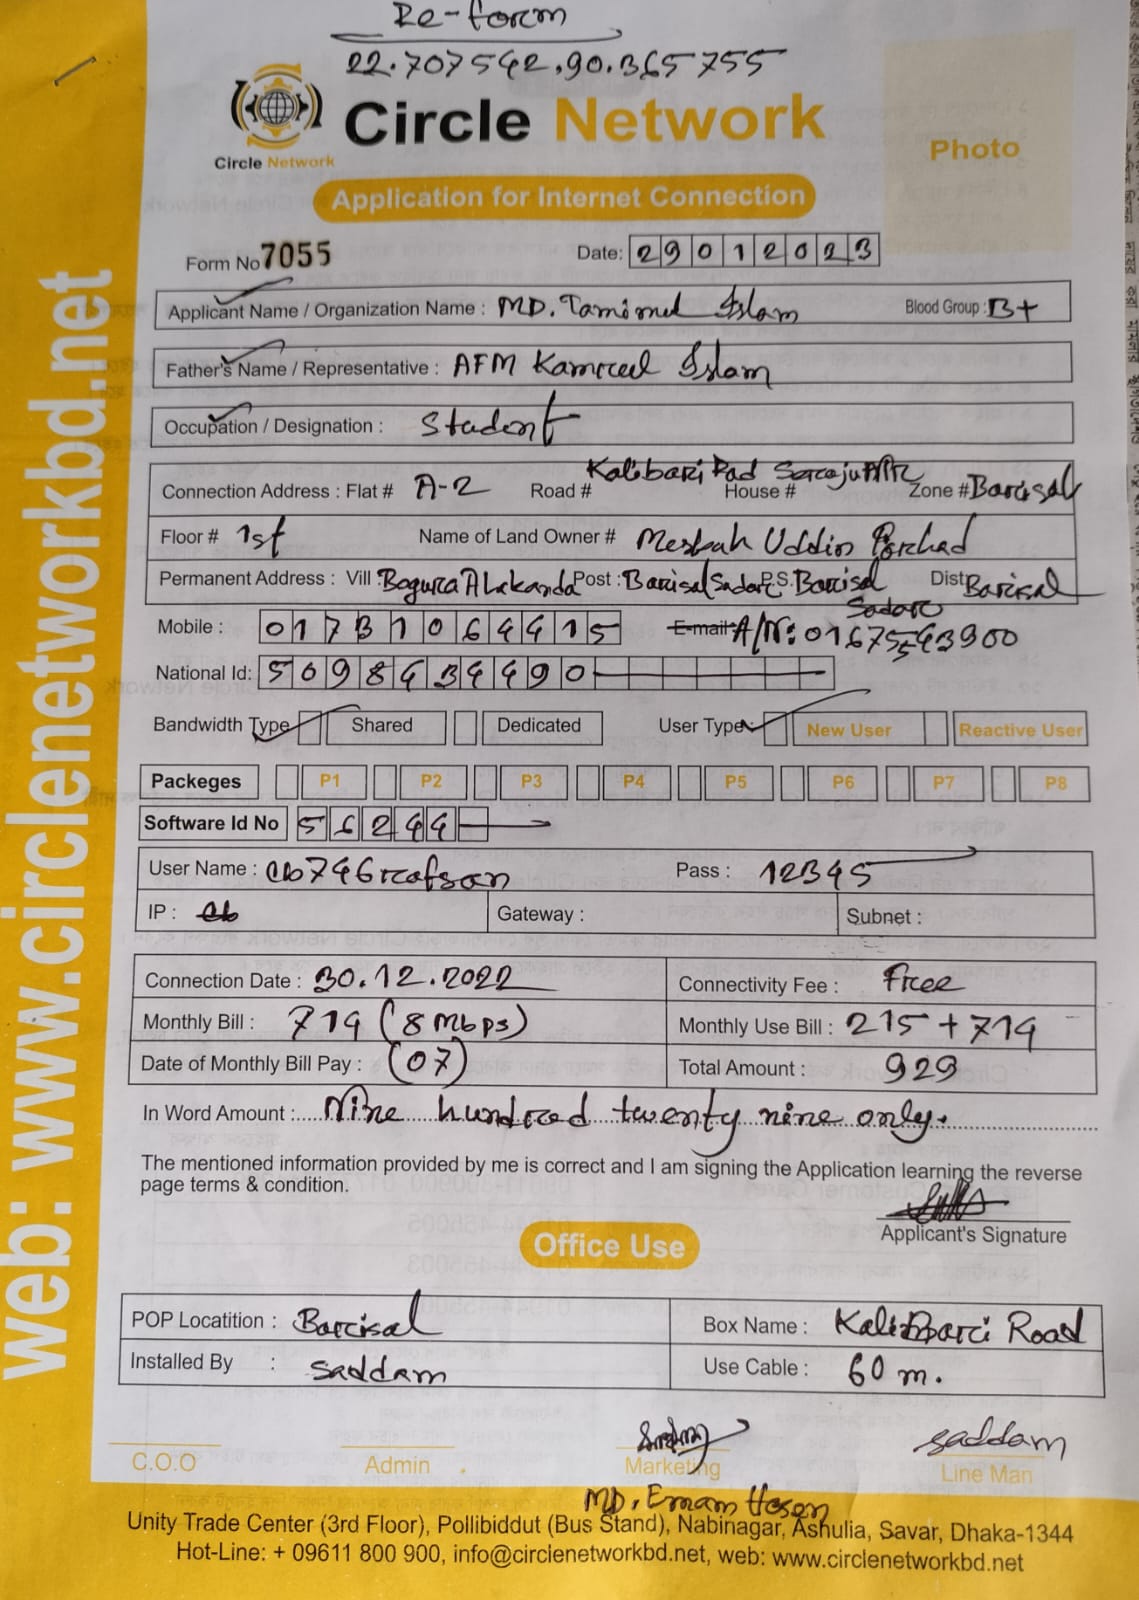 Re-form
22.707542,90.365755
Circle Network
Circle Network
Photo
Application for Internet Connection
Form No 7055
Date: 29012023
Applicant Name / Organization Name : MD. Tamimul Islam Blood Group : B+
Father's Name / Representative : AFM Kamrul Islam
Occupation / Designation : Student
Connection Address : Flat # A-2 Road # Kalibari Rad House # Zone # Barisal
Floor # 1st Name of Land Owner # Mesbah Uddin Forhad
Permanent Address : Vill : Bogura Alekanda Post : Barisal Sadar P.S. Barisal Sadar Dist Barisal
Mobile : 01731064415 E-mail A/N: 01675543900
National Id: 5098434490
Bandwidth Type Shared Dedicated User Type New User Reactive User
Packeges P1 P2 P3 P4 P5 P6 P7 P8
Software Id No 56244
User Name : cb746rafsan Pass : 12345
IP : cb Gateway : Subnet :
Connection Date : 30.12.2022 Connectivity Fee : Free
Monthly Bill : 714 (8 Mbps) Monthly Use Bill : 215 + 714
Date of Monthly Bill Pay : (07) Total Amount : 929
In Word Amount : Nine hundred twenty nine only.
The mentioned information provided by me is correct and I am signing the Application learning the reverse
page terms & condition.
Applicant's Signature
Office Use
POP Locatition : Barisal Box Name : Kalibari Road
Installed By : saddam Use Cable : 60 m.
saddam
C.O.O Admin Marketing Line Man
MD. Emam Hosen
Unity Trade Center (3rd Floor), Pollibiddut (Bus Stand), Nabinagar, Ashulia, Savar, Dhaka-1344
Hot-Line: + 09611 800 900, info@circlenetworkbd.net, web: www.circlenetworkbd.net
web: www.circlenetworkbd.net